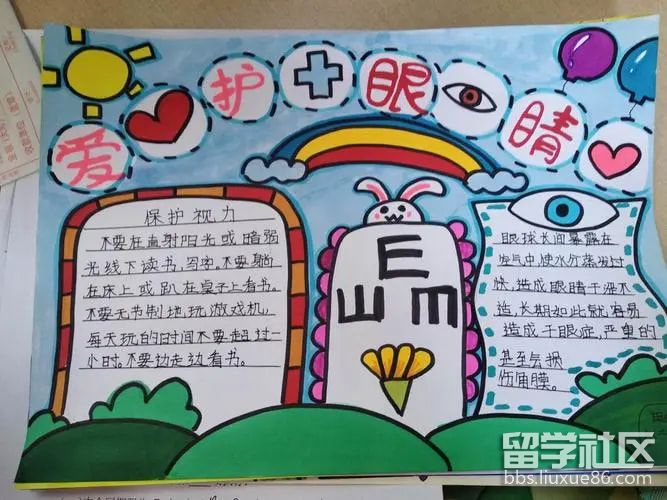 爱护眼睛
保护视力
不要在直射阳光或暗弱
光线下读书,写字。不要躺
在床上或趴在桌子上看书。
不要无节制地玩游戏机,
每天玩的时间不要超过一
小时。不要边走边看书。
E
E
E
眼球长间暴露在
空气中,使水分蒸发过
快,造成眼睛干涩不
适,长期如此就容易
造成干眼症,严重的
甚至会损
伤角膜。
留学社区
bbs.liuxue86.com